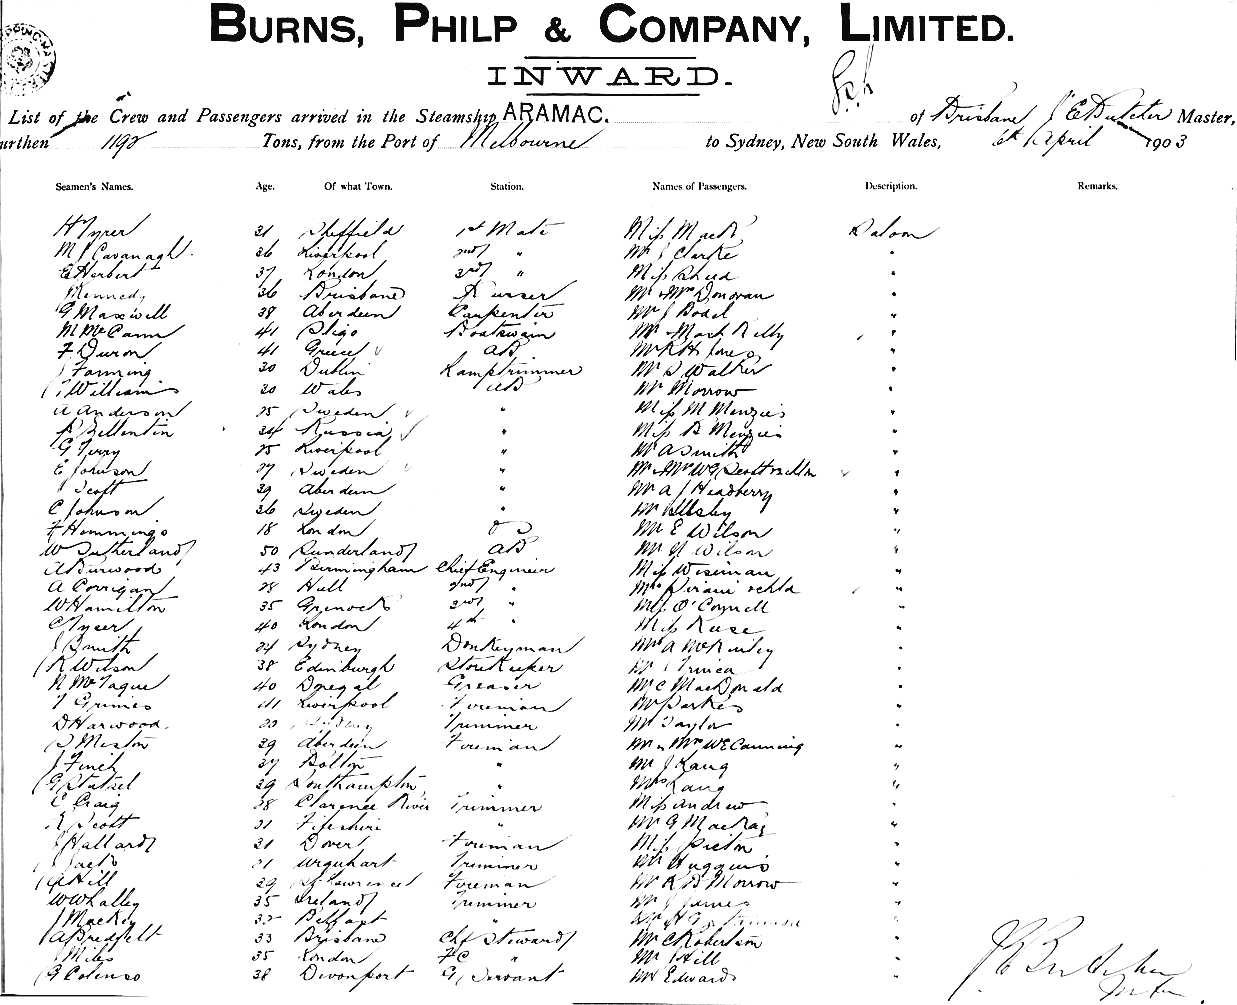 BURNS, PHILP & COMPANY, LIMITED.
INWARD.
List of the Crew and Passengers arrived in the Steamship ARAMAC. of Brisbane J E Butcher Master,
urthen 1192 Tons, from the Port of Melbourne to Sydney, New South Wales, 6th April 1903
Seamen's Names. Age. Of what Town. Station. Names of Passengers. Description. Remarks.
H Tyrer 31 Sheffield 1st Mate Miss Mack Saloon
M J Cavanagh 36 Liverpool 2nd " Mr J Clarke "
E Herbert 37 London 3rd " Miss "
Kennedy 36 Brisbane Purser Mr & Mrs Donovan "
G Maxwell 38 Aberdeen Carpenter Mr J Bodel "
M McCann 41 Sligo Boatswain Mr Mack Reilly "
F Duron 41 Greece AB Mr R H Jones "
J Fanning 30 Dublin Lamptrimmer Mr S Walker "
T Williams 30 Wales AB Mr Morrow "
A Anderson 25 Sweden " Miss M Menzies "
24 Russia " Miss B Menzies "
G Terry 25 Liverpool " Mr A Smith "
E Johnson 27 Sweden " Mr & Mrs W G Scott "
Scott 29 Aberdeen " Mr A J Headberry "
C Johnson 26 Sweden " Mr "
F Hemmings 18 London OS Mr E Wilson "
W Sutherland 50 Sunderland AB Mr Wilson "
A Burwood 43 Birmingham Chief Engineer Miss Wiseman "
A Corrigan 28 Hull 2nd " Mrs "
W Hamilton 35 Greenock 3rd " O'Connell "
C Tyser 40 London 4th " Miss Ruse "
J Smith 24 Sydney Donkeyman Mr A McKinley "
R Wilson 38 Edinburgh Storekeeper Mr "
N McTague 40 Donegal Greaser Mr C MacDonald "
T Grimes 41 Liverpool Fireman Mr Parkes "
D Harwood 20 Sydney Trimmer Mr Taylor "
S Meston 29 Aberdeen Fireman Mr & Mrs W E Canning "
J Finch 27 Bolton " Mr J Laug "
G 29 Southampton " Mrs Laug "
E Craig 28 Clarence River Trimmer Miss Andrew "
R Scott 31 Fifeshire " Mr G Mackay "
J Hallard 31 Dover Fireman Miss Picton "
J Jack 21 Urquhart Trimmer Mr Huggins "
Hill 29 St Lawrence Foreman Mr R B Morrow "
W Whalley 35 Ireland Trimmer Mr J James "
J Mackey 32 Belfast " Mr "
A Bredfelt 33 Brisbane Chf Steward Mr C Robertson "
J Miles 35 London FC " Mr Hill "
G Colenso 38 Devonport G Servant Mr Edwards "
J E Butcher
Master